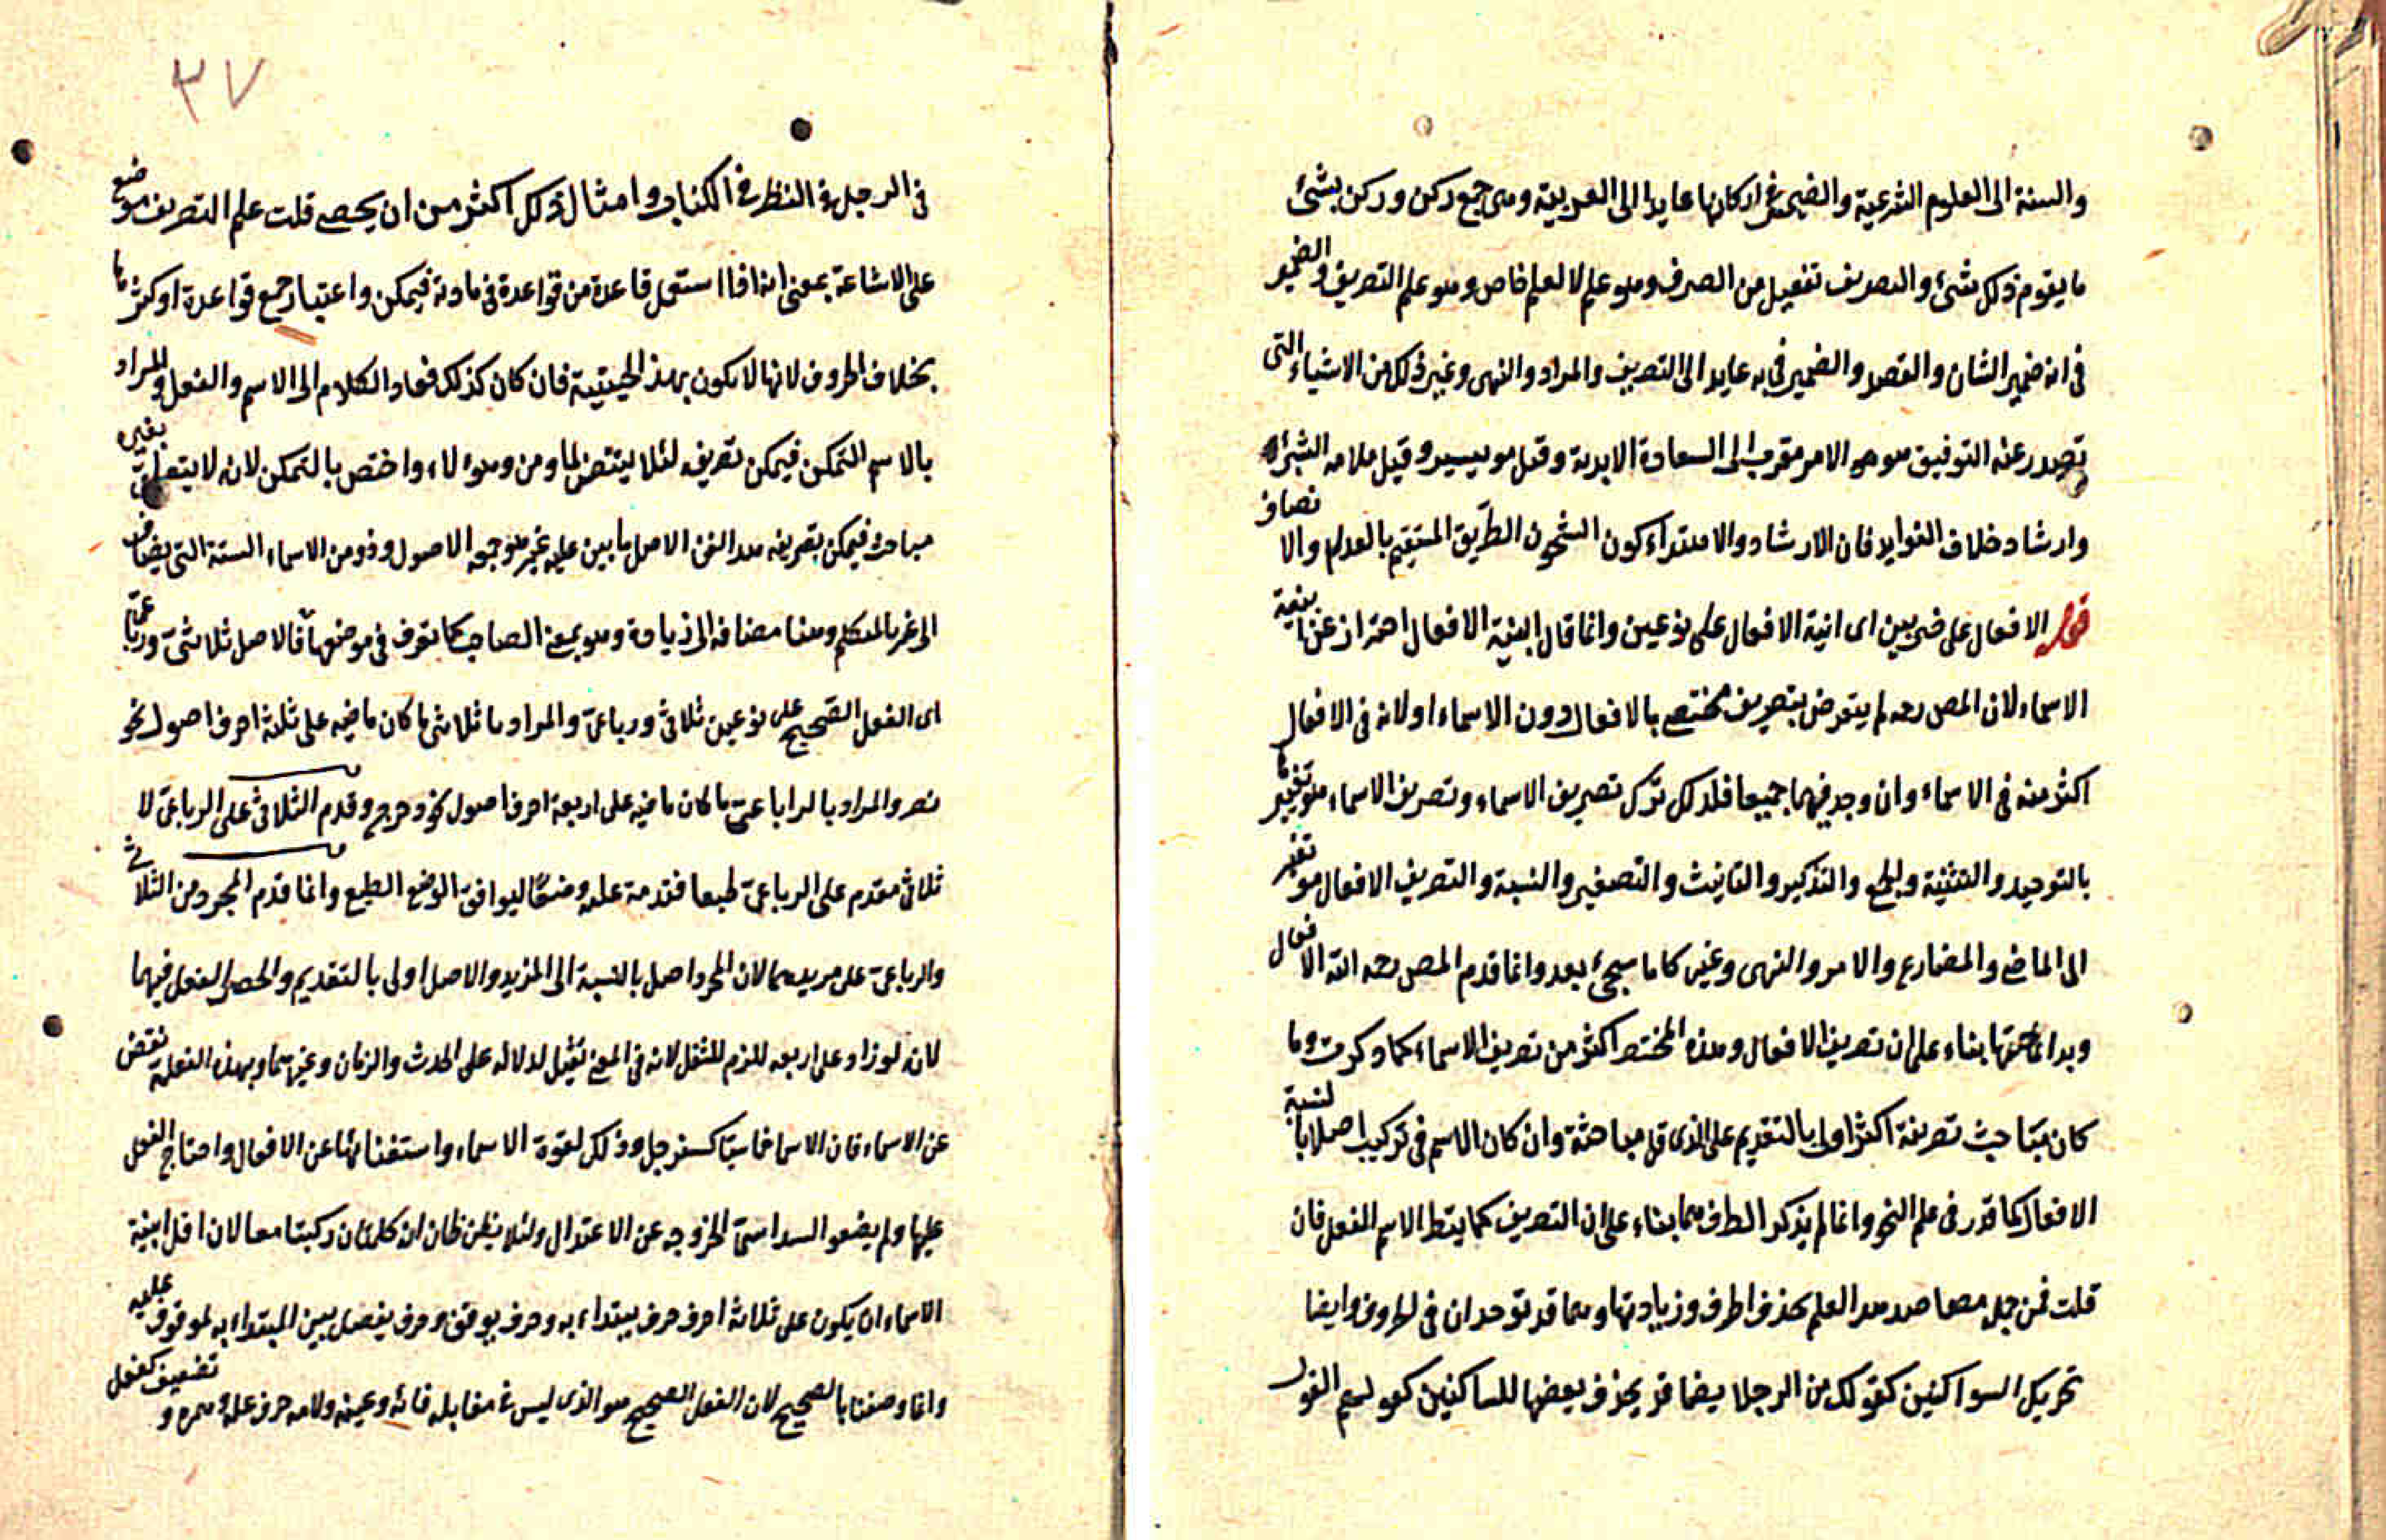 والسنة الى العلوم الشرعية والضمير في اركانها عايد الى العربية وهي جمع ركن وركن بشئ
ما يقوم ذلك شئ والتصريف تفعيل من الصرف وهو علم لا لعلم خاص وهو علم التصريف والضمير
في انه ضمير الشان والقصد والضمير في به عايد الى التصريف والمراد والنهى وغير ذلك من الاشياء التى
تصدر عنه التوفيق هو الامر مقرب الى السعادة الابدية وقيل هو يسير وقيل
وارشاد خلاف الغوايد فان الارشاد والاهتداء كون الشخص الطريق المستقيم بالعدل والا نصاف
قوله الافعال على ضربين اى ابنية الافعال على نوعين وانما قال ابنية الافعال احترازا عن ابنية
الاسماء لان المص رحه لم يتعرض بتصريف مختص بالافعال دون الاسماء او لانه في الافعال
اكثر منه في الاسماء وان وجد فيهما جميعا فلذلك ترك تصريف الاسماء وتصريف الاسماء هو تغيرها
بالتوحيد والتثنية والجمع والتذكير والتانيث والتصغير والنسبة والتصريف الافعال هو تغير
الى الماضى والمضارع والامر والنهى وغير كا ما سيجئ بعد وانما قدم المص رحمه الله الافعال
وبداء بناء على ان تصريف الافعال وهذه المختصر اكثر من تصريف الاسماء كما ذكرت وما
كان مباحث تصريفه اكثر اولى بالتقديم على الذى قل مباحثه وان كان الاسم في تركيب اصلا بالنسبة
الافعال كما قدر في علم النحو وانما لم يذكر الحرف بناء على ان التصريف كما الاسم الفعل فان
قلت فمن جملة هذا العلم بحذف الحرف وزيادتها وهما قد توحدان في الحروف وايضا
تحريك السواكنين كقولك من الرجل ايضا قد يحذف بعضها للساكنين
٣٧
في الرجل في النظر في الكتاب وامثال ذلك اكثر من ان يحصى قلت علم التصريف موضع
على الاشاعة بمعنى انه اذا استعمل قاعدة من قواعدة في مادته فيمكن واعتبار جمع قواعدة او كثرها
بخلاف الحروف لانها لا يكون بهذ الحيثية فان كان كذلك فعاد الكلام الى الاسم والفعل والمراد
بالاسم التمكن فيمكن تصريفه لئلا ينتقض بما ومن وهؤلاء واختص بالتمكن لانه لا يتعلق بغيره
مباحث فيمكن بتصريفه هذا الفن الاصل ما يبين عليه غير الاصول وذو من الاسماء الستة التى يضاف
الى غير المتكلم وهنا مضافة الى زيادة وهو بمعنى الصاحب كما تعرف في موضعها قال الاصل ثلاثى ورباعى
اى الفعل الصحيح على نوعين ثلاثى ورباعى والمراد با ثلاثى ما كان ماضيه على ثلثة احرف اصول نحو
نصر والمراد بالرباعى ما كان ماضيه على اربعة احرف اصول نحو دحرج وقدم الثلاثى على الرباعى لا
ثلاثى مقدم على الرباعى طبعا فقدمه عليه وضعًا ليوافق الوضع الطبع وانما قدم المجرد من الثلاثى
والرباعى على مزيدهما لان المجرد اصل بالنسبة الى المزيد والاصل اولى بالتقديم والحصر الفعل فيهما
لانه لو زاد على اربعه للزم للثقل لانه في المعنى ثقيل لدلاله على الحدث والزمان وغيرهما وبهذه العلة نقتض
عن الاسماء فان الاسما خماسيًا كسفرجل وذلك لقوة الاسماء واستغنائها عن الافعال واحتاج الفعل
عليها ولم يضعوا السداسى الخروجه عن الاعتدال ولئلا يظن ظان انه كلمتان ركبتا معا لان اقل ابنية
الاسماء ان يكون على ثلاثة احرف حرف يبتداء به وحرف يوقف وحرف يفصل بين المبتداء به لموقوف عليه
وانما وصفنا بالصحيح لان الفعل الصحيح هو الذى ليس في مقابله فائه وعينه ولامه حرف علة وهمزه و تضعيف كفعل